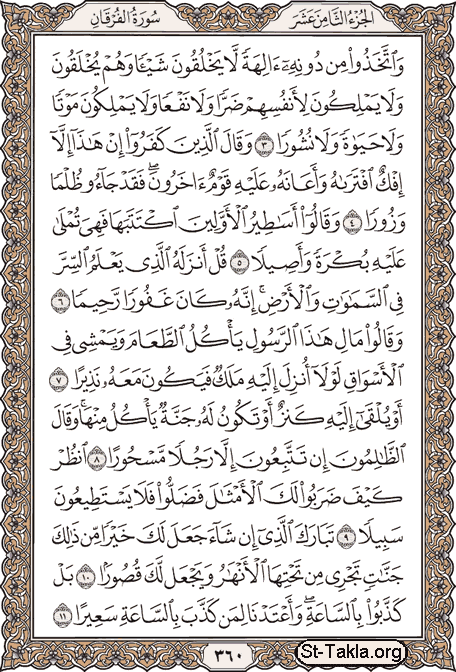 الجزء الثامن عشر
سورة الفرقان
وَٱتَّخَذُوا۟ مِن دُونِهِۦٓ ءَالِهَةً لَّا يَخْلُقُونَ شَيْـًٔا وَهُمْ يُخْلَقُونَ
وَلَا يَمْلِكُونَ لِأَنفُسِهِمْ ضَرًّا وَلَا نَفْعًا وَلَا يَمْلِكُونَ مَوْتًا
وَلَا حَيَوٰةً وَلَا نُشُورًا ٣ وَقَالَ ٱلَّذِينَ كَفَرُوٓا۟ إِنْ هَـٰذَآ إِلَّآ
إِفْكٌ ٱفْتَرَىٰهُ وَأَعَانَهُۥ عَلَيْهِ قَوْمٌ ءَاخَرُونَ ۖ فَقَدْ جَآءُو ظُلْمًا
وَزُورًا ٤ وَقَالُوٓا۟ أَسَـٰطِيرُ ٱلْأَوَّلِينَ ٱكْتَتَبَهَا فَهِىَ تُمْلَىٰ
عَلَيْهِ بُكْرَةً وَأَصِيلًا ٥ قُلْ أَنزَلَهُ ٱلَّذِى يَعْلَمُ ٱلسِّرَّ
فِى ٱلسَّمَـٰوَٰتِ وَٱلْأَرْضِ ۚ إِنَّهُۥ كَانَ غَفُورًا رَّحِيمًا ٦
وَقَالُوا۟ مَالِ هَـٰذَا ٱلرَّسُولِ يَأْكُلُ ٱلطَّعَامَ وَيَمْشِى فِى
ٱلْأَسْوَاقِ ۙ لَوْلَآ أُنزِلَ إِلَيْهِ مَلَكٌ فَيَكُونَ مَعَهُۥ نَذِيرًا ٧
أَوْ يُلْقَىٰٓ إِلَيْهِ كَنزٌ أَوْ تَكُونُ لَهُۥ جَنَّةٌ يَأْكُلُ مِنْهَا ۚ وَقَالَ
ٱلظَّـٰلِمُونَ إِن تَتَّبِعُونَ إِلَّا رَجُلًا مَّسْحُورًا ٨ ٱنظُرْ
كَيْفَ ضَرَبُوا۟ لَكَ ٱلْأَمْثَـٰلَ فَضَلُّوا۟ فَلَا يَسْتَطِيعُونَ
سَبِيلًا ٩ تَبَارَكَ ٱلَّذِىٓ إِن شَآءَ جَعَلَ لَكَ خَيْرًا مِّن ذَٰلِكَ
جَنَّـٰتٍ تَجْرِى مِن تَحْتِهَا ٱلْأَنْهَـٰرُ وَيَجْعَل لَّكَ قُصُورًۢا ١٠ بَلْ
كَذَّبُوا۟ بِٱلسَّاعَةِ ۖ وَأَعْتَدْنَا لِمَن كَذَّبَ بِٱلسَّاعَةِ سَعِيرًا ١١
٣٦٠
St-Takla.org